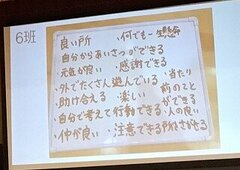 6班
良い所 ・何でも一生懸命
・自分からあいさつができる
・元気が良い ・感謝できる
・外でたくさん遊んでいる ・当たり
・助け合える ・楽しい 前のこと
・自分で考えて行動できる ができる
・仲が良い ・注意できる ・人の良い
所をさがせる